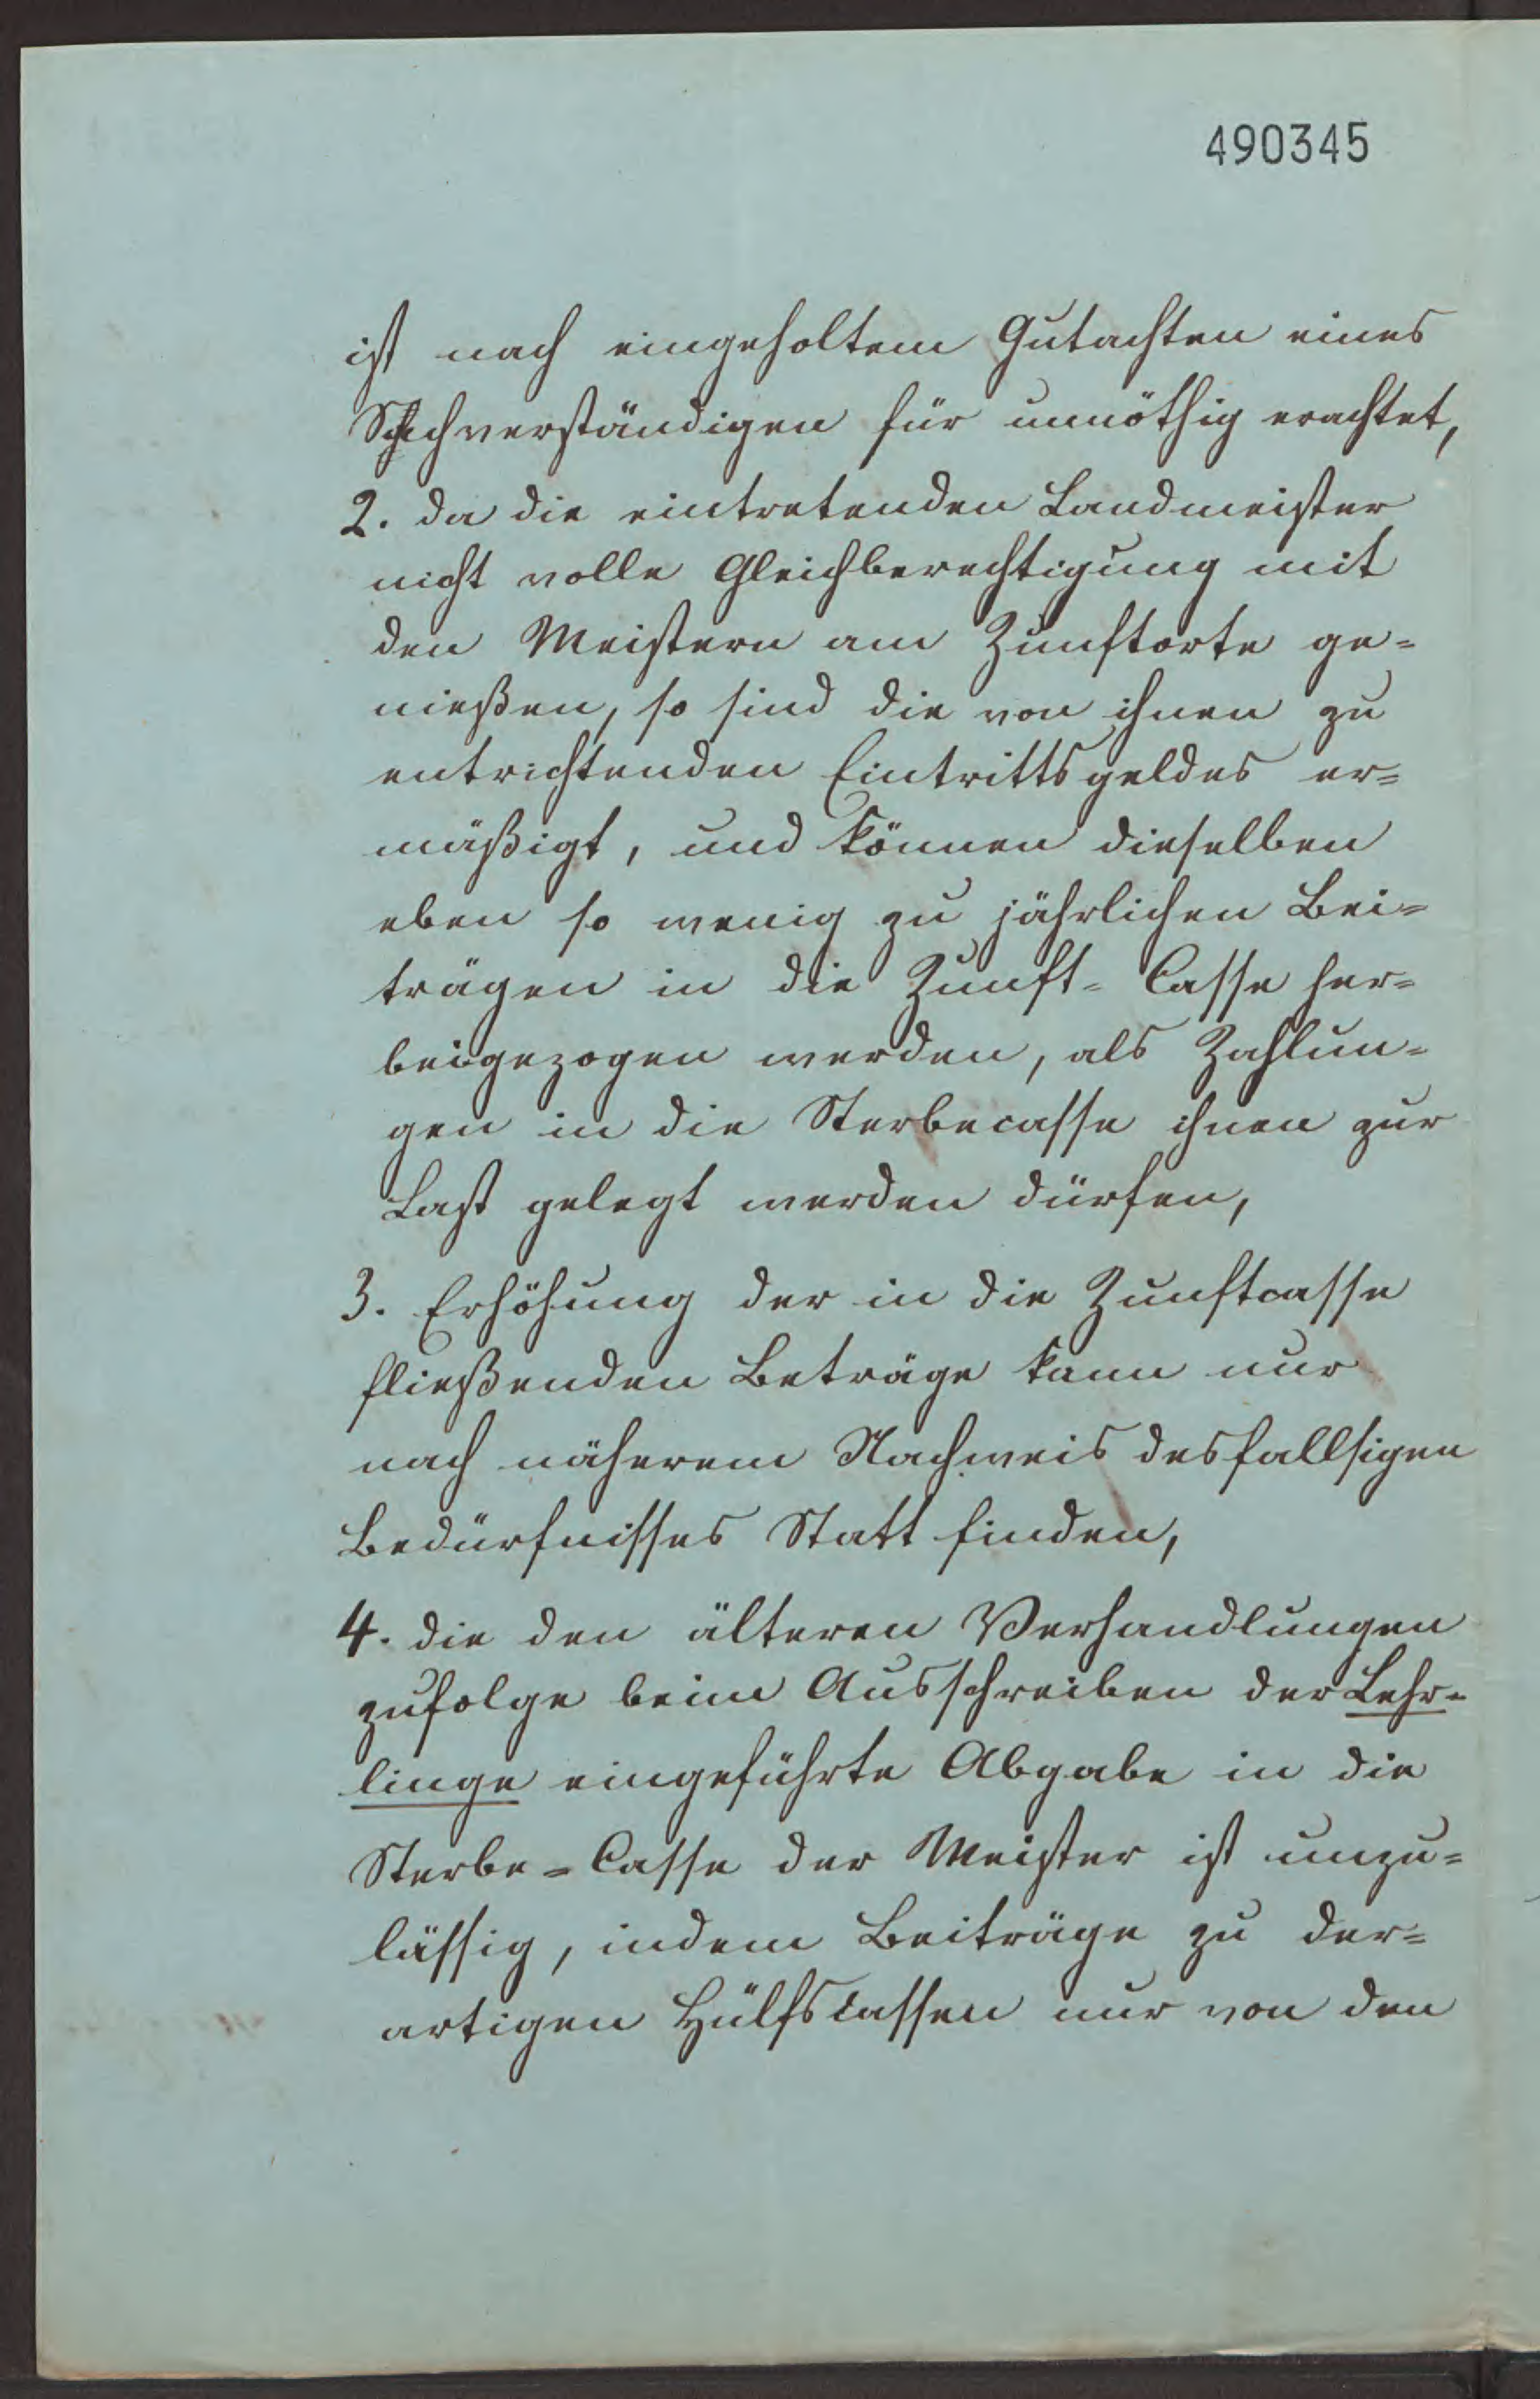 490345
ist nach eingeholtem Gutachten eines
Sachverständigen für unnöthig erachtet,
2. da die eintretenden Landmeister
nicht volle Gleichberechtigung mit
den Meistern am Zunftorte ge=
nießen, so sind die von ihnen zu
entrichtenden Eintrittsgeldes er=
mäßigt, und können dieselben
eben so wenig zu jährlichen Bei=
trägen in die Zunft=Casse her=
beigezogen werden, als Zahlun=
gen in die Sterbecasse ihnen zur
Last gelegt werden dürfen,
3. Erhöhung der in die Zunftcasse
fließenden Beträge kann nur
nach näherem Nachweis desfallsigen
Bedürfnisses Statt finden,
4. die den älteren Verhandlungen
zufolge beim Ausschreiben der Lehr=
linge eingeführte Abgabe in die
Sterbe=Casse der Meister ist unzu=
lässig, indem Beiträge zu der=
artigen Hülfscassen nur von den